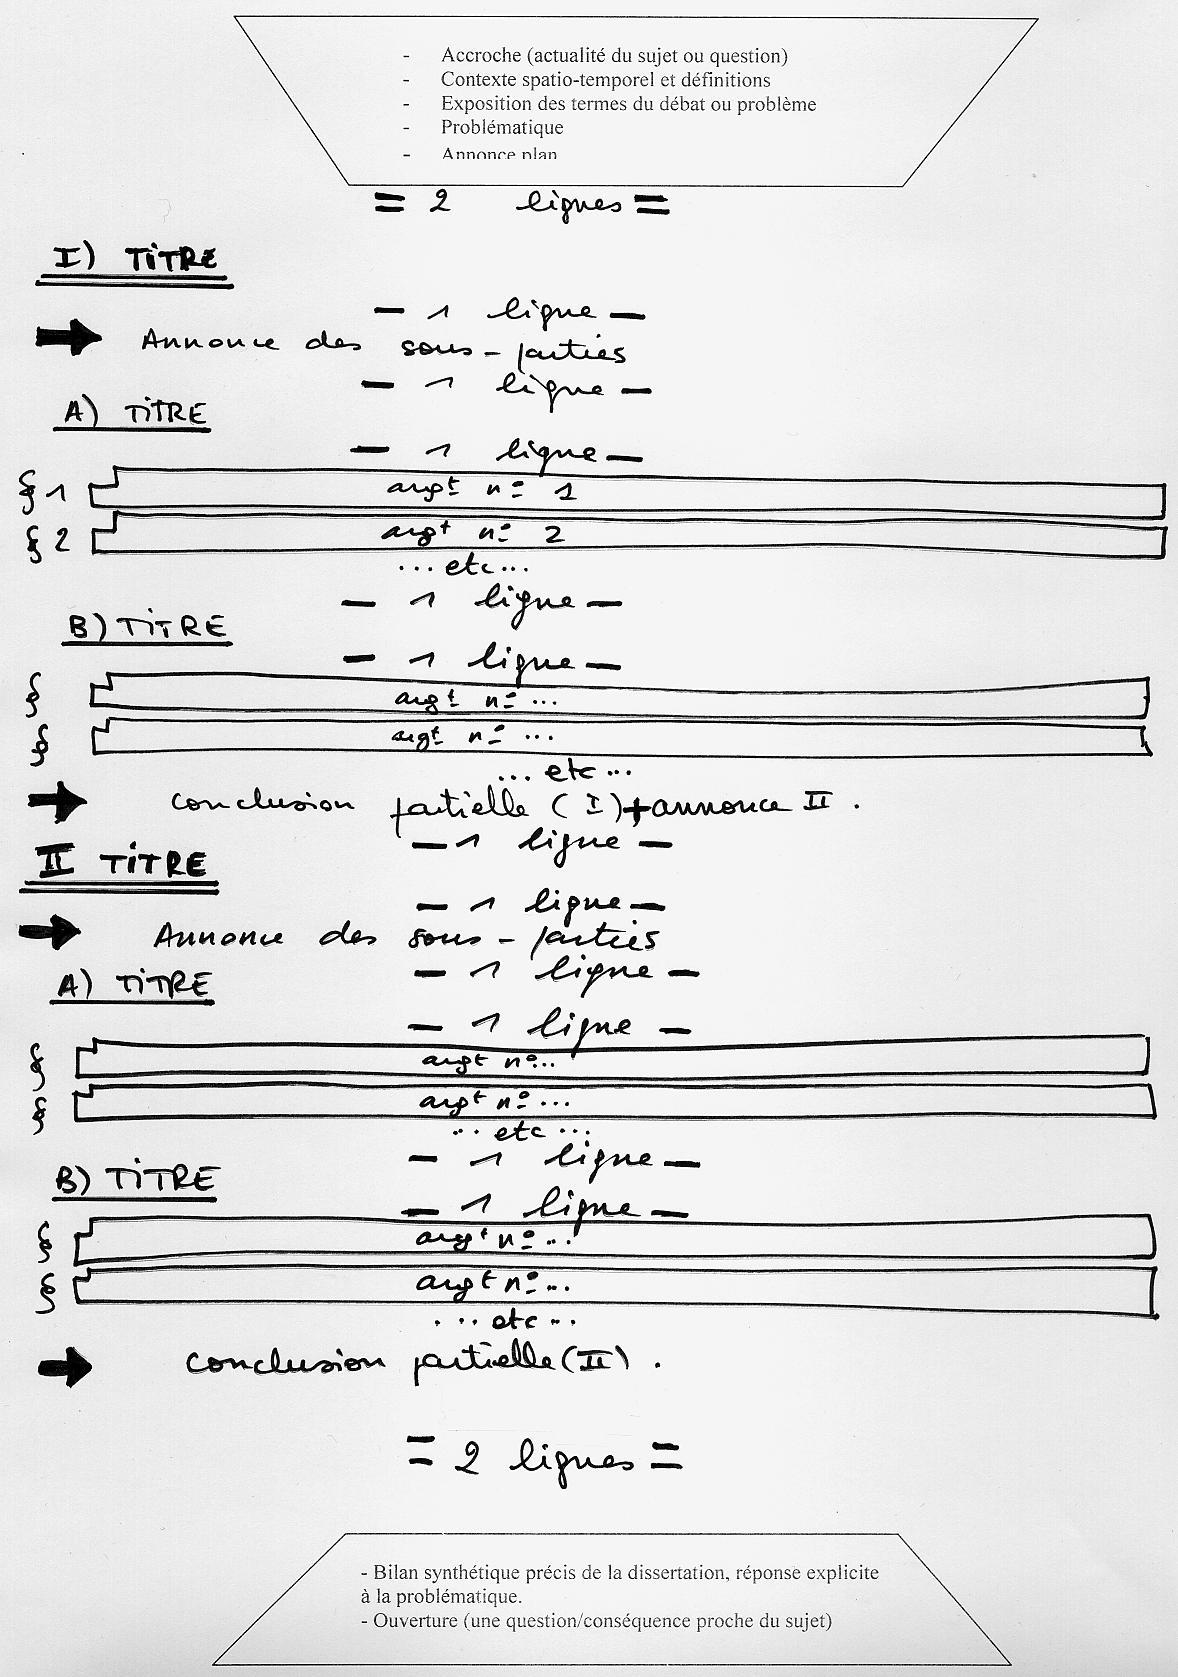 - Accroche (actualité du sujet ou question)
- Contexte spatio-temporel et définitions
- Exposition des termes du débat ou problème
- Problématique
- Annonce plan
= 2 lignes =
I) TITRE
- 1 ligne -
Annonce des sous-parties
- 1 ligne -
A) TITRE
- 1 ligne -
§ 1 argt n° 1
§ 2 argt n° 2
...etc...
- 1 ligne -
B) TITRE
- 1 ligne -
§ argt n° ...
§ argt n° ...
...etc...
conclusion partielle (I) + annonce II.
- 1 ligne -
II TITRE
- 1 ligne -
Annonce des sous-parties
- 1 ligne -
A) TITRE
- 1 ligne -
§ argt n°...
§ argt n° ...
...etc...
- 1 ligne -
B) TITRE
- 1 ligne -
§ argt n° ...
§ argt n°...
...etc...
conclusion partielle (II).
= 2 lignes =
- Bilan synthétique précis de la dissertation, réponse explicite
à la problématique.
- Ouverture (une question/conséquence proche du sujet)